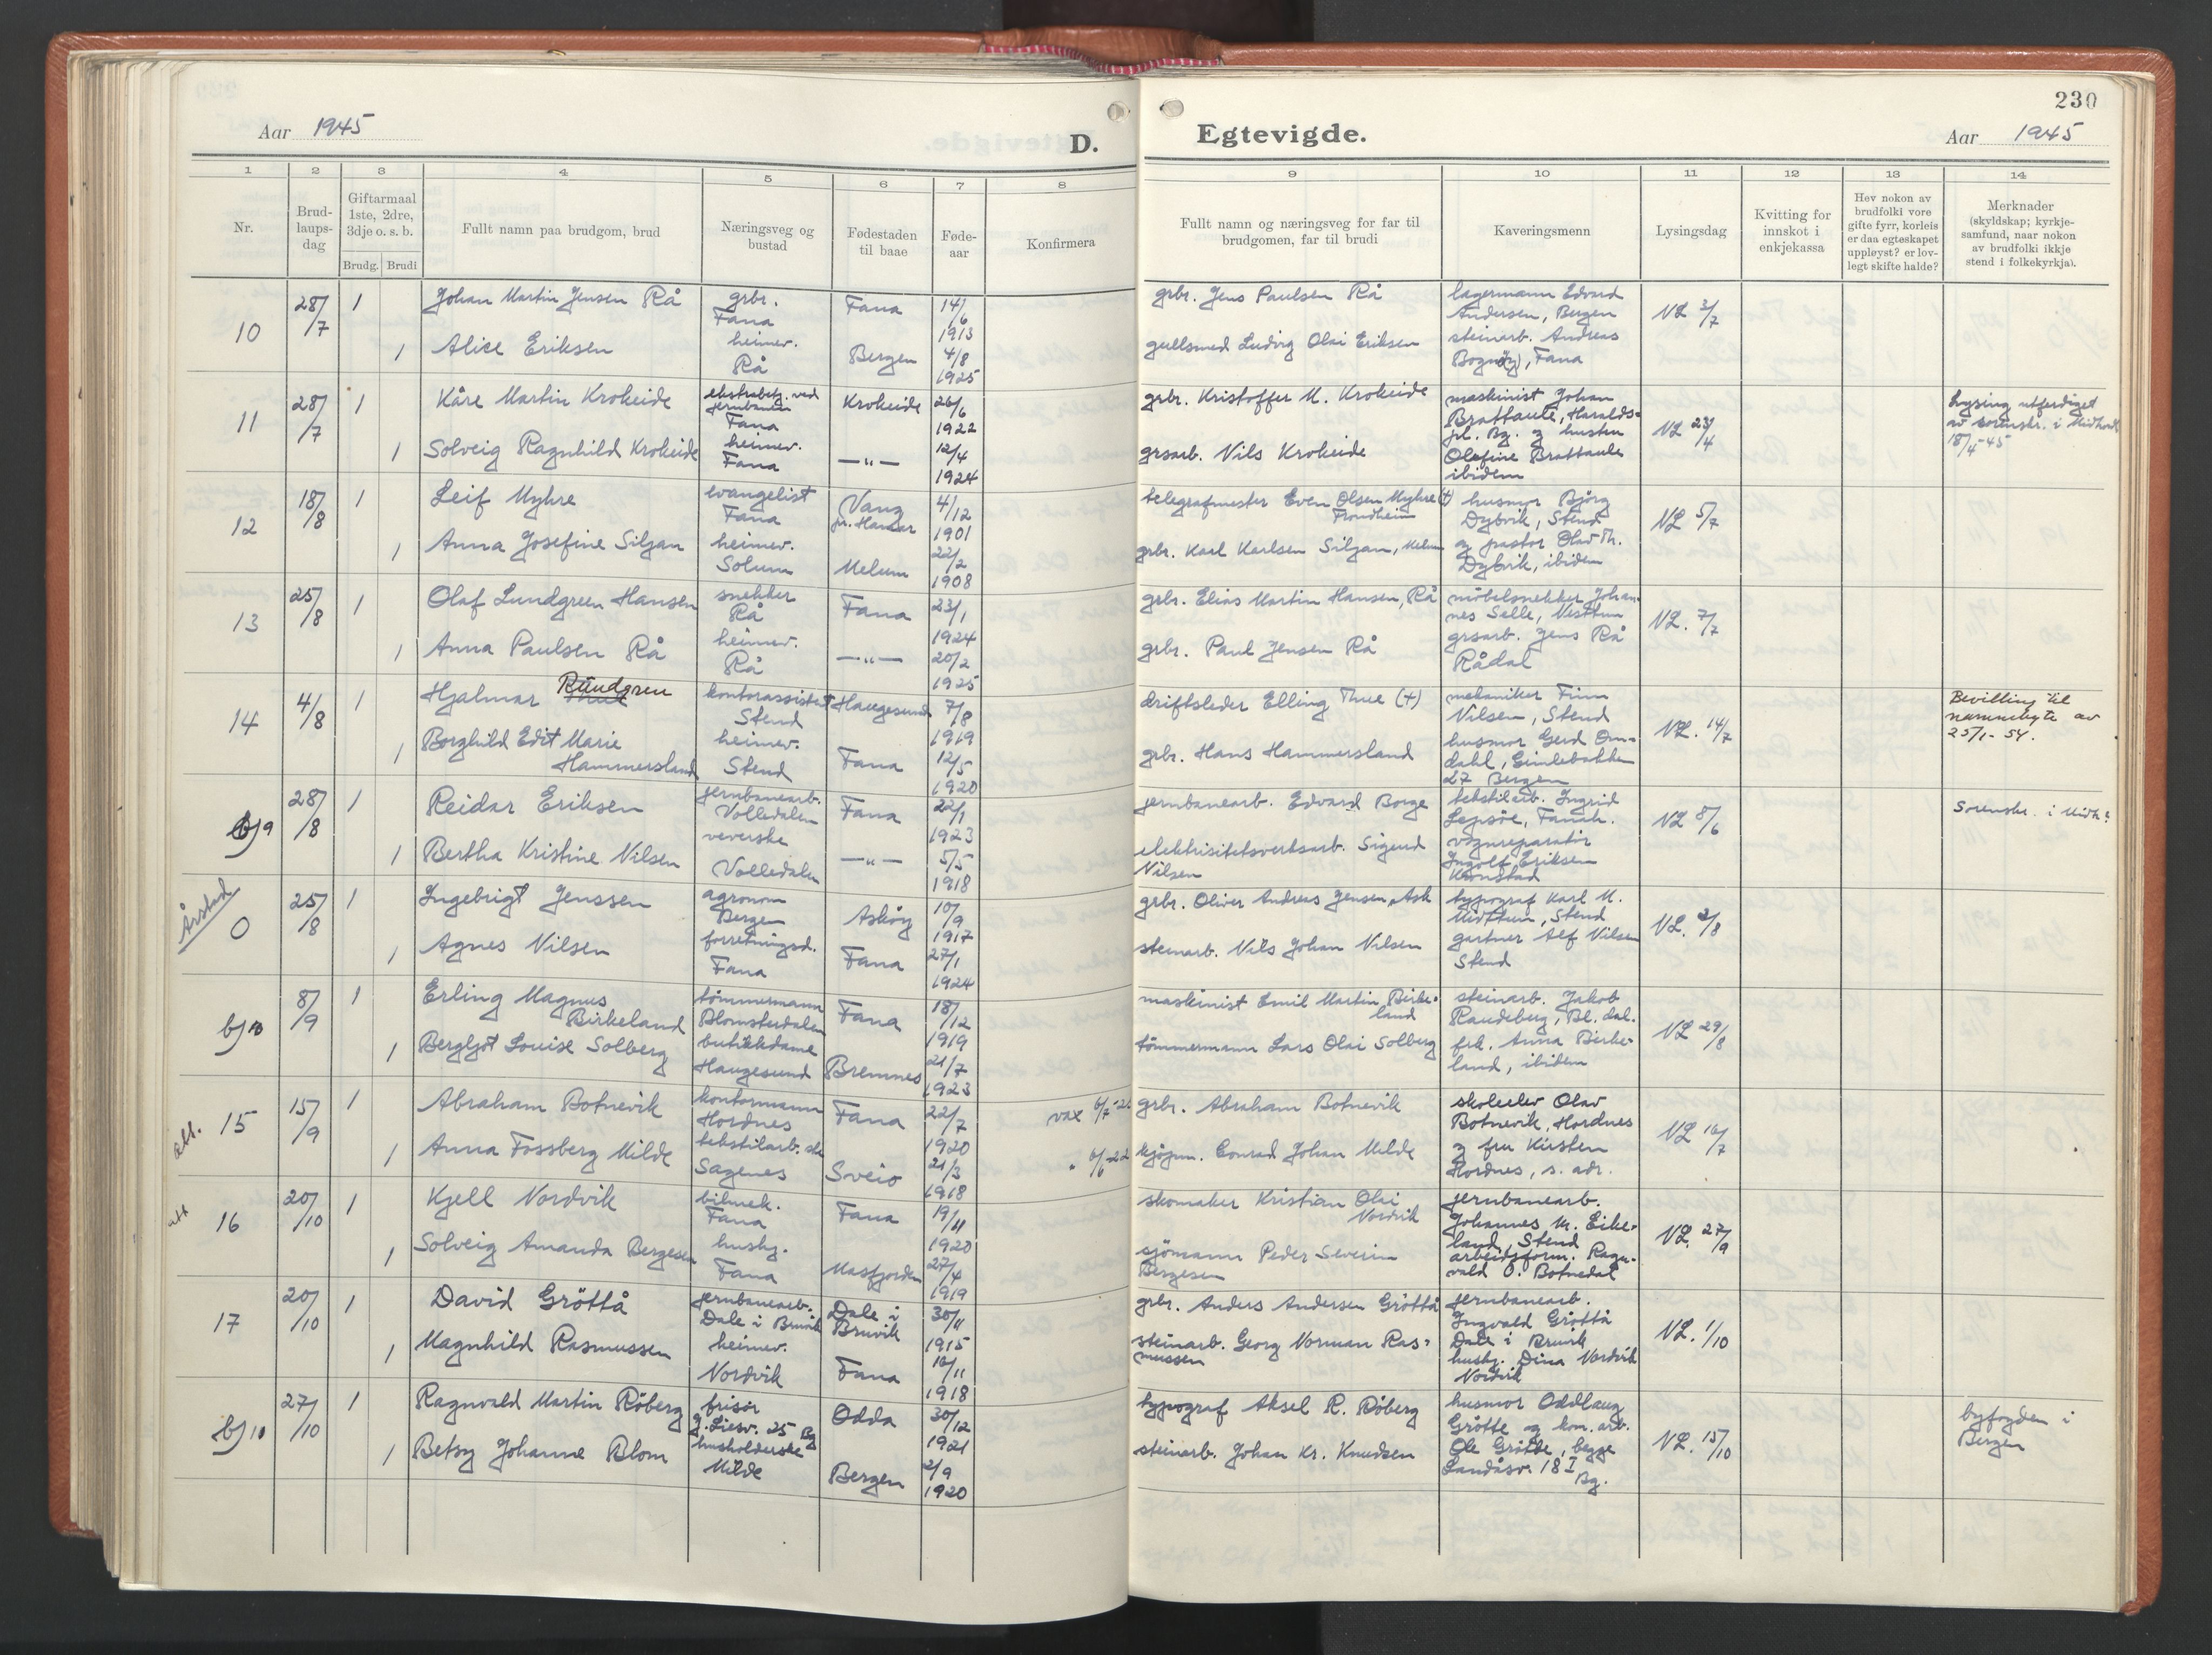 230
Aar 1945
D.
Egtevigde.
Aar 1945
1 2 3 4 5 6 7 8 9 10 11 12 13 14
Nr.
Brud-
laups-
dag
Giftarmaal
1ste, 2dre,
3dje o. s. b.
Brudg. Brudi
Fullt namn paa brudgom, brud
Næringsveg og
bustad
Fødestaden
til baae
Føde-
aar
Konfirmera
Fullt namn og næringsveg for far til
brudgomen, far til brudi
Kaveringsmenn
Lysingsdag
Kvitting for
innskot i
enkjekassa
Hev nokon av
brudfolki vore
gifte fyrr, korleis
er daa egteskapet
uppløyst? er lov-
legt skifte halde?
Merknader
(skyldskap; kyrkje-
samfund, naar nokon
av brudfolki ikkje
stend i folkekyrkja).
10
28/7
1
Johan Martin Jensen Rå
grbr.
Fana
Fana
14/6
1913
grbr. Jens Paulsen Rå
lagermann Edvard
Andersen, Bergen
VL 3/7
1
Alice Eriksen
heimev.
Rå
Bergen
4/8
1925
gullsmed Ludvig Olai Eriksen
steinarb. Andreas
Fana
11
28/7
1
Kåre Martin Krokeide
ekstrabetj. ved
jernbanen
Fana
Krokeide
26/6
1922
grbr. Kristoffer M. Krokeide
maskinist Johan
Brattaule, Haralds-
pl. Bg. og hustru
Olefine Brattaule
ibidem
VL 23/4
Lysing utferdiget
av sorenskr. i Midhordl.
18/4-45
1
Solveig Ragnhild Krokeide
heimev.
Fana
—"—
12/4
1924
grsarb. Nils Krokeide
12
18/8
1
Leif Myhre
evangelist
Fana
Vang
pr. Hamar
4/12
1901
telegrafmester Even Olsen Myhre (+)
Trondheim
husmor Bjørg
Dybvik, Stend
og pastor Olav Th.
Dybvik, ibidem
VL 5/7
1
Anna Josefine Siljan
heimev.
Solum
Melum
22/2
1908
grbr. Karl Karlsen Siljan, Melum
13
25/8
1
Olaf Lundgreen Hansen
snekker
Rå
Fana
23/1
1924
grbr. Elias Martin Hansen, Rå
möbelsnekker Johan-
nes Sælle, Nesttun
grsarb. Jens Rå
Rådal
VL. 7/7
1
Anna Paulsen Rå
heimev.
Rå
—"—
20/2
1925
grbr. Paul Jensen Rå
14
4/8
1
Hjalmar Thue Rundgren
kontorassistent
Stend
Haugesund
7/8
1919
driftsleder Elling Thue (+)
mekaniker Finn
Nilsen, Stend
husmor Gerd Om-
dahl, Gimlebakken
27 Bergen
VL. 14/7
Bevilling til
namnebyte av
25/1-54.
1
Borghild Edit Marie
Hammersland
heimev.
Stend
Fana
12/5
1920
grbr. Hans Hammersland
bj 9
28/8
1
Reidar Eriksen
jernbanearb.
Volledalen
Fana
22/1
1923
jernbanearb. Edvard Borge
tekstilarb. Ingrid
Lepsöe, Fanah.
vognreparatör
Ingolf Eriksen
Kronstad
VL 8/6
Sorenskr. i Midh.
1
Bertha Kristine Nilsen
veverske
Volledalen
—"—
5/5
1918
elektrisitetsverksarb. Sigurd
Nilsen
Årstad
0
25/8
1
Ingebrigt Jenssen
agronom
Bergen
Askøy
10/9
1917
grbr. Oliver Andreas Jensen, Ask
typograf Karl M.
Midttun, Stend
gartner Alf Nilsen
Stend
VL. 2/8
1
Agnes Nilsen
forretningsd.
Fana
Fana
27/1
1924
steinarb. Nils Johan Nilsen
bj 10
8/9
1
Erling Magnus
Birkeland
tömmermann
Blomsterdalen
Fana
18/12
1919
maskinist Emil Martin Birke-
land
steinarb. Jakob
Raudeberg, Bl. dal.
frk. Anna Birke-
land, ibidem
VL 29/8
1
Bergljot Louise Solberg
butikkdame
Haugesund
Bremnes
21/7
1923
tömmermann Lars Olai Solberg
att.
15
15/9
1
Abraham Botnevik
kontormann
Hordnes
Fana
22/7
1920
grbr. Abraham Botnevik
skoleelev Olav
Botnevik, Hordnes
og fru Kirsten
Hordnes, s. adr.
VL 16/7
1
Anna Fossberg Milde
tekstilarb.
Sagenes
Sveio
21/3
1918
kjöpm. Conrad Johan Milde
att
16
20/10
1
Kjell Nordvik
bilmek.
Fana
Fana
19/11
1920
skomaker Kristian Olai
Nordvik
jernbanearb.
Johannes M. Eike-
land, Stend
arbeidsform. Ragn-
vald O. Botnedal
VL. 27/9
1
Solveig Amanda Bergesen
husbg.
Fana
Masfjorden
27/4
1919
sjömann Peder Severin
Bergesen
17
20/10
1
David Gröttå
jernbanearb.
Dale i Bruvik
Dale i
Bruvik
30/11
1915
grbr. Anders Andersen Gröttå
jernbanearb.
Ingvald Gröttå
Dale i Bruvik
husbg. Dina Nordvik
Nordvik
VL. 1/10
1
Magnhild Rasmussen
heimev.
Nordvik
Fana
16/11
1918
steinarb. Georg Norman Ras-
mussen
bj 11
27/10
1
Ragnvald Martin Röberg
frisör
25 Bg
Odda
30/12
1921
typograf Aksel R. Röberg
husmor Oddlaug
Grötte og kom. arb.
Ole Grötte, begge
Landåsv. 18 I
Bg.
VL. 15/10
byfogden i
Bergen
1
Betsy Johanne Blom
husholderske
Milde
Bergen
2/9
1920
steinarb. Johan Kr. Knudsen